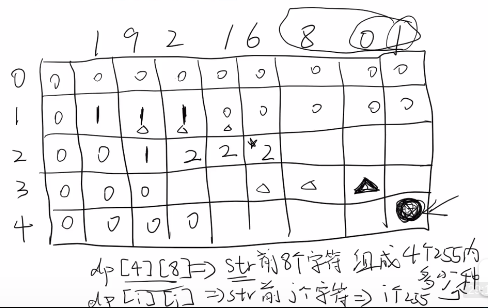 1 9 2 1 6 8 0 1
0 0 0 0 0 0 0 0 0 0
1 0 1 1 1 0 0 0 0 0
2 0 0 1 2 2 2
3 0 0 0
4 0 0 0 0
dp[4][8]=>str前8个字符 组成4个255内
多少种
dp[i][j]=>str前j个字符=>i个255